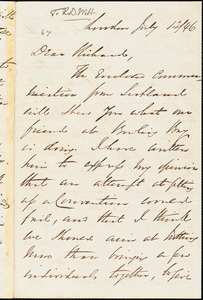 To R.D. Webb
London July 12/46
Dear Richard,
The Enclosed Commu-
nication from Scotland
will Shew You what our
friends at
is doing. I have written
him to express my opinion
that an attempt at getting
up a Convention would
fail, and that I think
we Should aim at Nothing
More than bringing a few
individuals together, to give